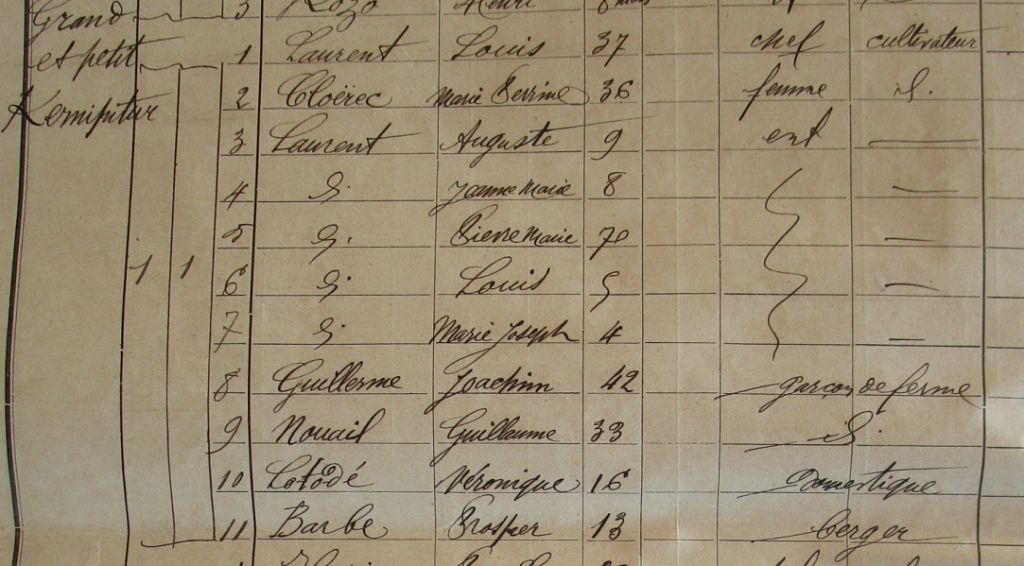 Grand 3 Rozo Henri
et petit 1 Laurent Louis 37 chef cultivateur
Kermiputur 2 Cloërec Marie Perrine 36 femme d.
3 Laurent Auguste 9 enf —
4 d. Jeanne Marie 8 —
5 d. Pierre Marie 7 —
1 1 6 d. Louis 5 —
7 d. Marie Joseph 4 —
8 Guillerme Joachim 42 garçon de ferme
9 Nouail Guillaume 33 d.
10 Lotodé Véronique 16 Domestique
11 Barbe Prosper 13 berger